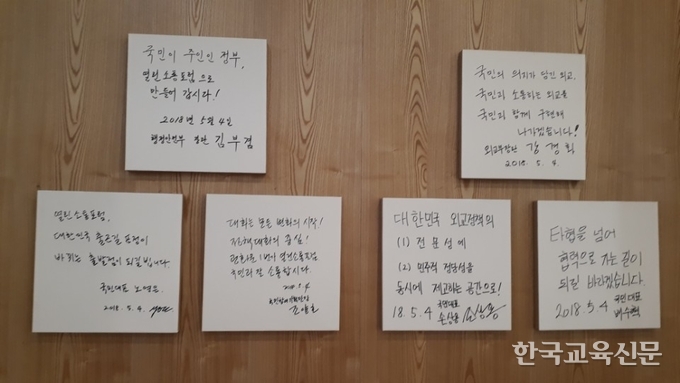 국민이 주인인 정부,
열린소통포럼으로
만들어 갑시다!
2018년 5월 4일
행정안전부 장관 김부겸
국민의 의지가 담긴 외교,
국민과 소통하는 외교를
국민과 함께 구현해
나가겠습니다!
외교부장관 강경화
2018. 5. 4.
열린소통포럼,
대한민국 품은길 포럼이
바뀌는 출발점이 되길 빕니다.
국민대표 노영
2018. 5. 4.
대화는 모든 변화의 시작!
1년이 열린소통포럼
국민과 잘 소통합시다.
2018. 5. 4
대한민국 외교정책의
(1) 전문성에
(2) 민주적 정당성을
동시에 제고하는 공간으로!
18. 5. 4 국민대표 손상용
타협을 넘어
협력으로 가는 길이
되길 바라겠습니다.
2018. 5. 4 국민대표
배수혁
한국교육신문